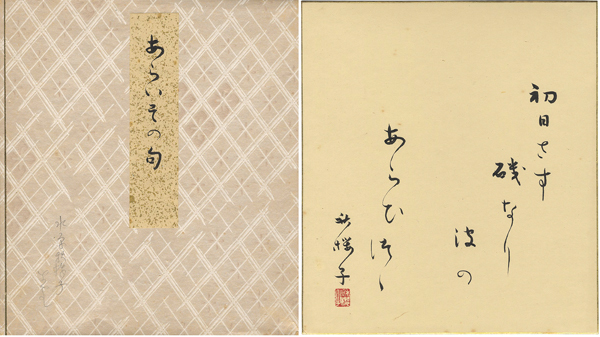 あらいその句
水原秋桜子
初日さす
磯なり
波の
あらひつゝ
秋櫻子